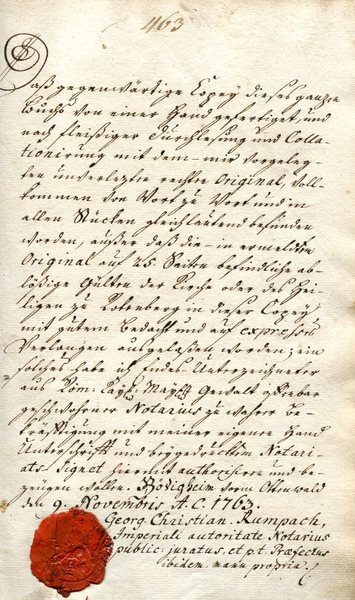 463
Daß gegenwärtige Copey dieses ganzen
Buchs von einer Hand gefertiget, und
nach fleißiger Durchlesung und Colla-
tionirung mit dem - mir vorgeleg-
ten unverlezten rechten Original, voll-
kommen von Wort zu Wort und in
allen Stücken gleichlautend befunden
worden, außer daß die - in ermeldtem
Original auf 25 Seiten befindliche ab-
lößige Gülten der Kirche oder des Hei-
ligen zu Rotenberg in dieser Copey
mit gutem Bedacht und auf expresses
Verlangen ausgelaßen worden; ein
solches habe ich Endes-Unterzeichneter
aus Röm. Kayßl. Mayst. Gewalt offenbar
geschwohrner Notarius zu wahrer Be-
kräfftigung mit meiner eigenen Hand
Unterschrifft und beygedrucktem Notari-
ats Signet hiermit authorisiren und be-
zeugen wollen. Bödigheim vorm Ottenwald
den 9. Novembris A. C. 1763.
Georg Christian Rumpach,
Imperiali autoritate Notarius
public: juratus, et p.t. Præfectus
ibidem. manu propria.